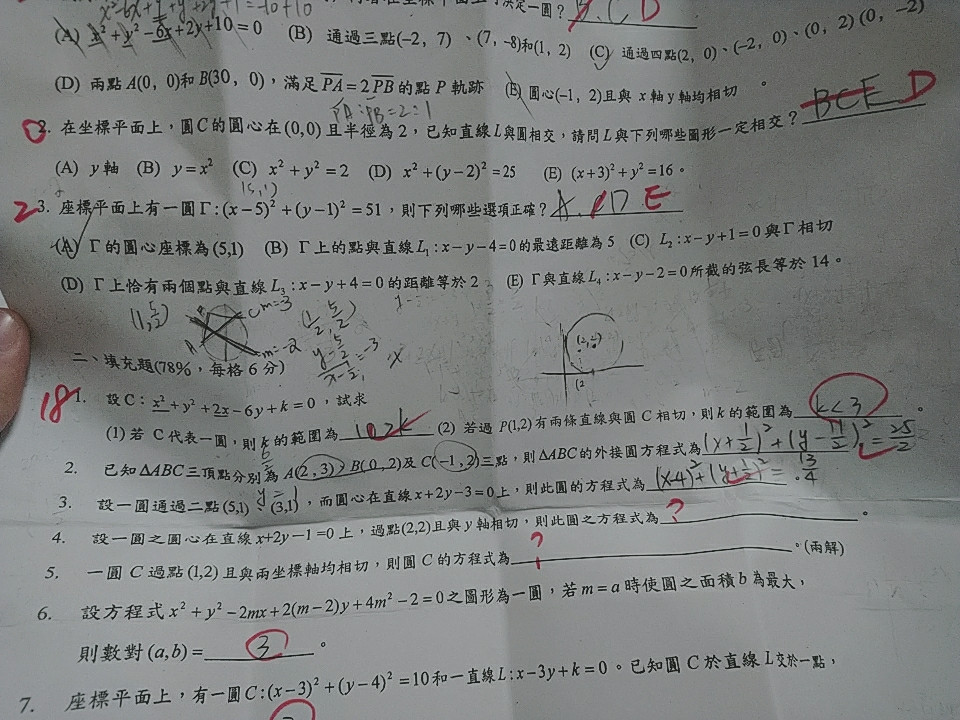 決定一圓？ B.C D
(A) x² + y² − 6x + 2y + 10 = 0 (B) 通過三點(−2, 7)、(7, −8)和(1, 2) (C) 通過四點(2, 0)、(−2, 0)、(0, 2)(0, −2)
(D) 兩點A(0, 0)和B(30, 0)，滿足PA = 2PB的點P軌跡 (E) 圓心(−1, 2)且與x軸y軸均相切。
PA:PB=2:1
2. 在坐標平面上，圓C的圓心在(0,0)且半徑為2，已知直線L與圓相交，請問L與下列哪些圖形一定相交？ BCE D
(A) y軸 (B) y = x² (C) x² + y² = 2 (D) x² + (y − 2)² = 25 (E) (x+3)² + y² = 16。
(5,1)
2 3. 座標平面上有一圓Γ:(x−5)² + (y−1)² = 51，則下列哪些選項正確？ A. D E
(A) Γ的圓心座標為(5,1) (B) Γ上的點與直線L₁: x − y − 4 = 0的最遠距離為5 (C) L₂: x − y + 1 = 0與Γ相切
(D) Γ上恰有兩個點與直線L₃: x − y + 4 = 0的距離等於2 (E) Γ與直線L₄: x − y − 2 = 0所截的弦長等於14。
m=-3
m=-2
(2,2)
二、填充題(78%，每格6分)
18 1. 設C: x² + y² + 2x − 6y + k = 0，試求
(1) 若C代表一圓，則k的範圍為 10>k (2) 若過P(1,2)有兩條直線與圓C相切，則k的範圍為 k<3 。
2. 已知ΔABC三頂點分別為A(2,3)、B(0,2)及C(−1,2)三點，則ΔABC的外接圓方程式為 (x+1/2)²+(y−11/2)²=25/2
3. 設一圓通過二點(5,1)、(3,1)，而圓心在直線x+2y−3=0上，則此圓的方程式為 (x-4)²+(y+1/2)²=13/4 。
4. 設一圓之圓心在直線x+2y−1=0上，過點(2,2)且與y軸相切，則此圓之方程式為 ? 。
5. 一圓C過點(1,2)且與兩坐標軸均相切，則圓C的方程式為 ? 。(兩解)
6. 設方程式x² + y² − 2mx + 2(m−2)y + 4m² − 2 = 0之圖形為一圓，若m = a時使圓之面積b為最大，
則數對(a,b) = 3 。
7. 座標平面上，有一圓C:(x−3)² + (y−4)² = 10和一直線L: x − 3y + k = 0。已知圓C於直線L交於一點，